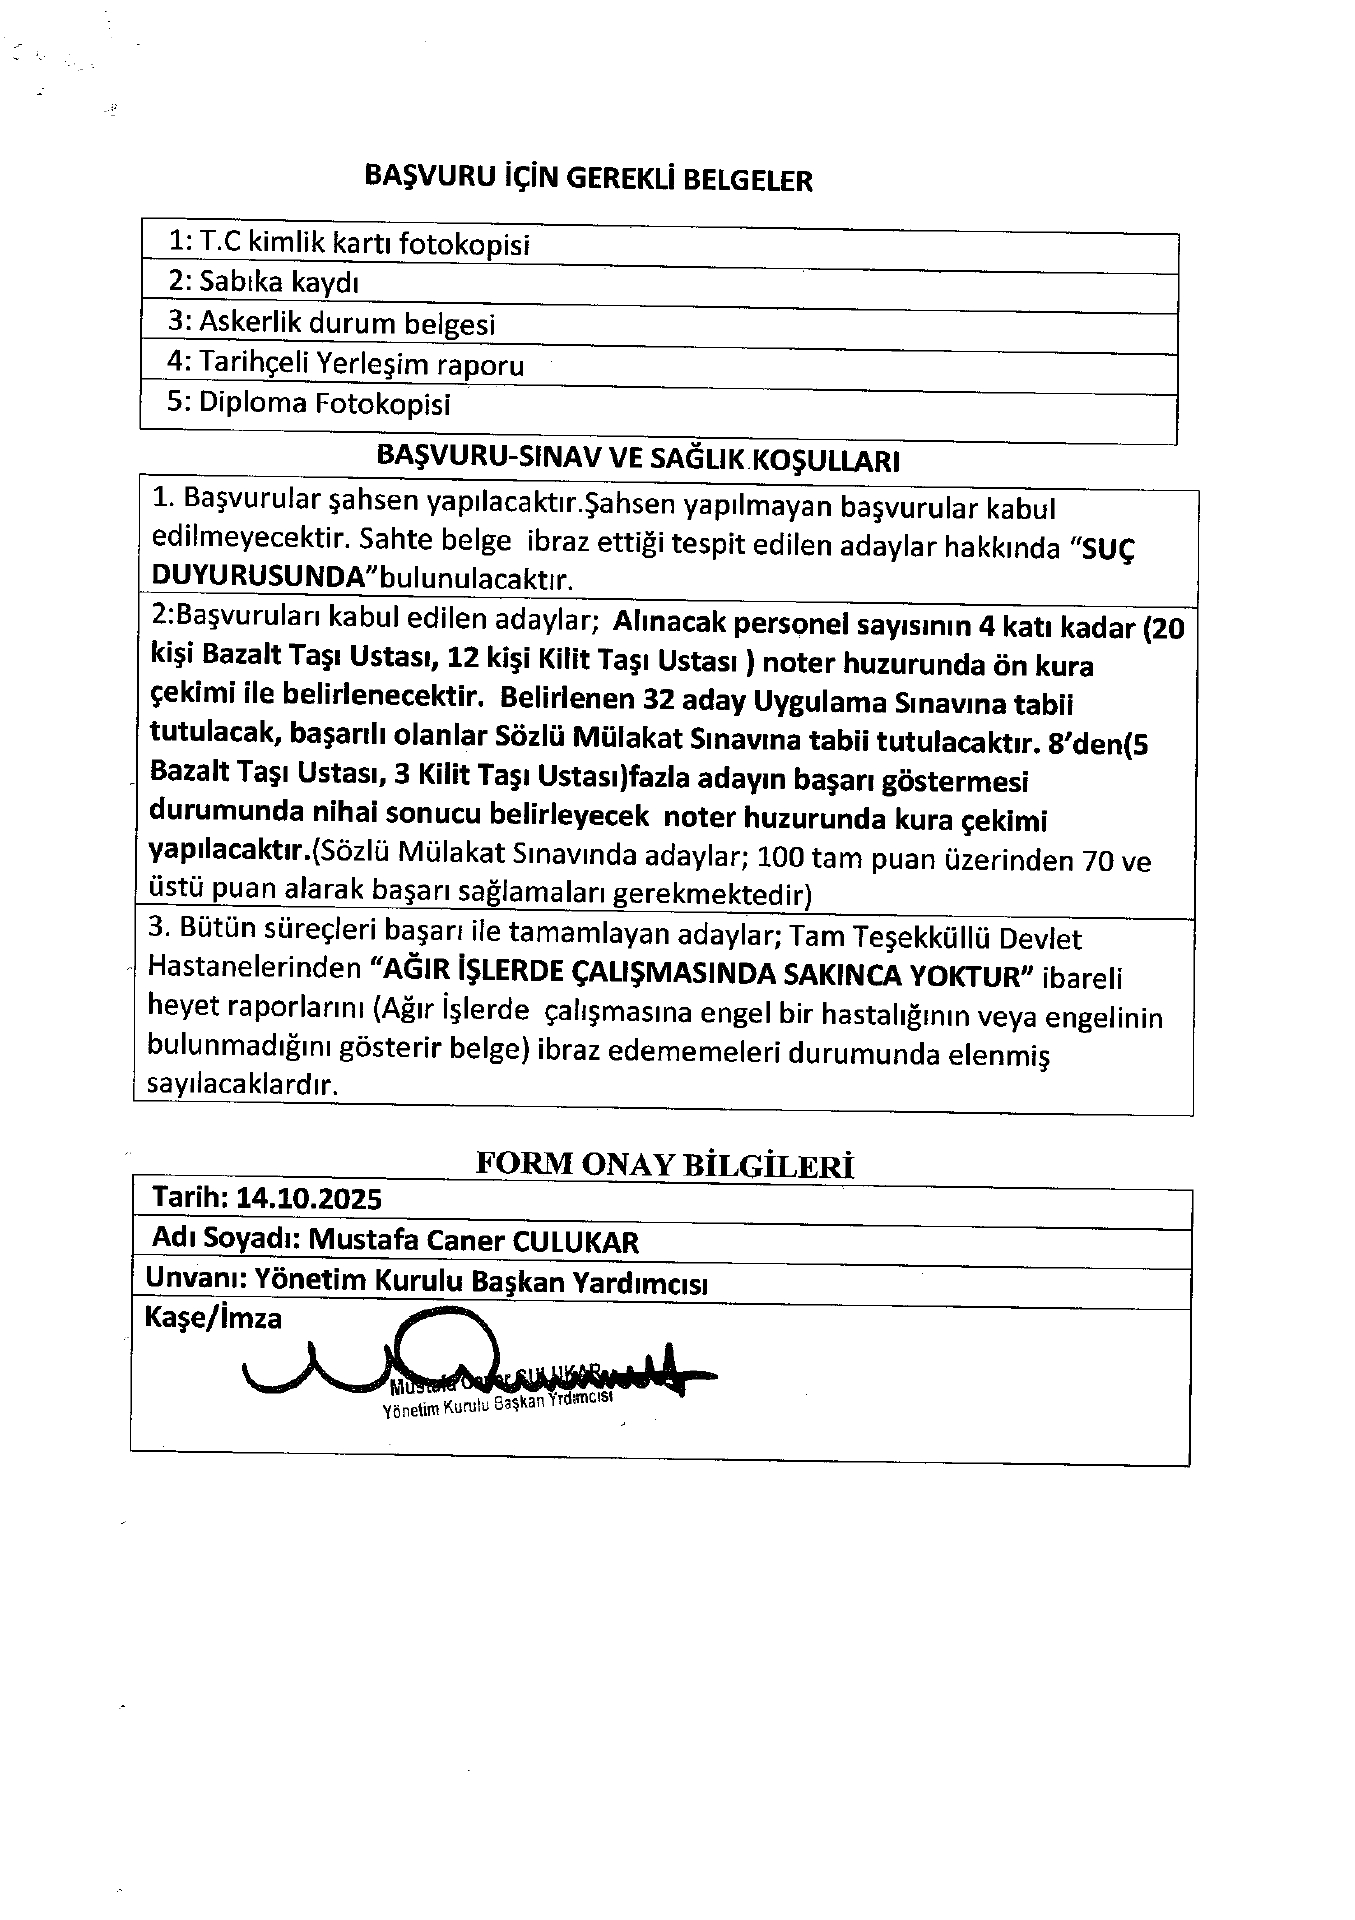 BAŞVURU İÇİN GEREKLİ BELGELER
1: T.C kimlik kartı fotokopisi
2: Sabıka kaydı
3: Askerlik durum belgesi
4: Tarihçeli Yerleşim raporu
5: Diploma Fotokopisi
BAŞVURU-SINAV VE SAĞLIK KOŞULLARI
1. Başvurular şahsen yapılacaktır.Şahsen yapılmayan başvurular kabul
edilmeyecektir. Sahte belge ibraz ettiği tespit edilen adaylar hakkında "SUÇ
DUYURUSUNDA"bulunulacaktır.
2:Başvuruları kabul edilen adaylar; Alınacak personel sayısının 4 katı kadar (20
kişi Bazalt Taşı Ustası, 12 kişi Kilit Taşı Ustası ) noter huzurunda ön kura
çekimi ile belirlenecektir. Belirlenen 32 aday Uygulama Sınavına tabii
tutulacak, başarılı olanlar Sözlü Mülakat Sınavına tabii tutulacaktır. 8'den(5
Bazalt Taşı Ustası, 3 Kilit Taşı Ustası)fazla adayın başarı göstermesi
durumunda nihai sonucu belirleyecek noter huzurunda kura çekimi
yapılacaktır.(Sözlü Mülakat Sınavında adaylar; 100 tam puan üzerinden 70 ve
üstü puan alarak başarı sağlamaları gerekmektedir)
3. Bütün süreçleri başarı ile tamamlayan adaylar; Tam Teşekküllü Devlet
Hastanelerinden "AĞIR İŞLERDE ÇALIŞMASINDA SAKINCA YOKTUR" ibareli
heyet raporlarını (Ağır İşlerde çalışmasına engel bir hastalığının veya engelinin
bulunmadığını gösterir belge) ibraz edememeleri durumunda elenmiş
sayılacaklardır.
FORM ONAY BİLGİLERİ
Tarih: 14.10.2025
Adı Soyadı: Mustafa Caner CULUKAR
Unvanı: Yönetim Kurulu Başkan Yardımcısı
Kaşe/İmza
Mustafa Caner CULUKAR
Yönetim Kurulu Başkan Yrdımcısı